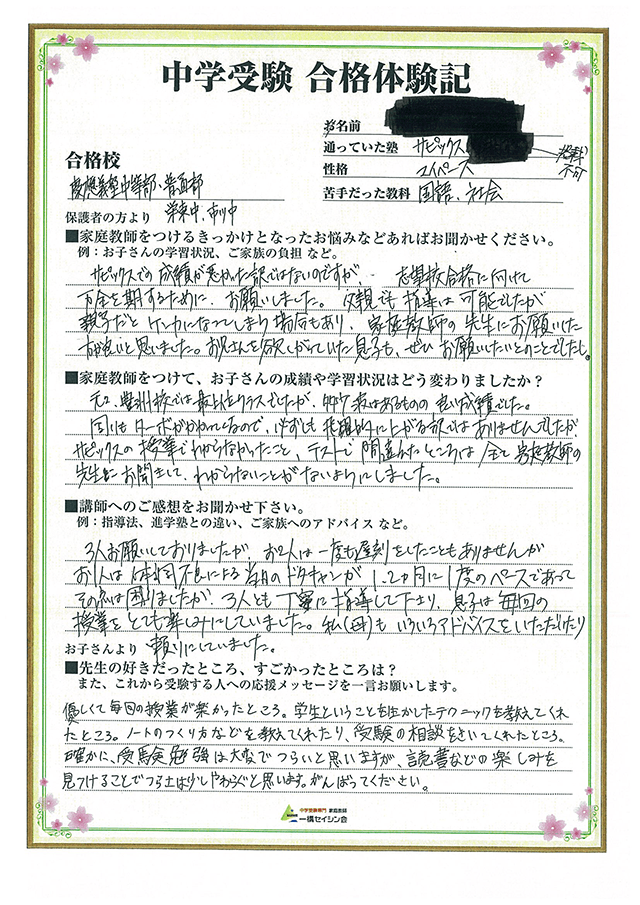 中学受験 合格体験記
お名前
通っていた塾 サピックス
性格 マイペース
苦手だった教科 国語、社会
合格校
慶應義塾中等部、普通部
栄東中、市川中
保護者の方より
■家庭教師をつけるきっかけとなったお悩みなどあればお聞かせください。
例：お子さんの学習状況、ご家族の負担 など。
サピックスでの成績が悪かった訳ではないのですが、志望校合格に向けて
万全を期するために、お願いしました。父親でも指導は可能でしたが
親子だとケンカになってしまう場合もあり、家庭教師の先生にお願いした
方が良いと思いました。お兄さんを欲しがっていた息子も、ぜひお願いしたいとのことでしたし。
■家庭教師をつけて、お子さんの成績や学習状況はどう変わりましたか？
元々、豊洲校では最上位クラスでしたが、多少波はあるものの良い成績でした。
周りもターボがかかっているので、必ずしも飛躍的に上がる訳ではありませんでしたが、
サピックスの授業でわからなかったこと、テストで間違えたところは全て家庭教師の
先生にお聞きして、わからないことがないようにしました。
■講師へのご感想をお聞かせ下さい。
例：指導法、進学塾との違い、ご家族へのアドバイス など。
3人お願いしておりましたが、お2人は一度も遅刻をしたこともありませんが
お1人は体調不良による当日のドタキャンが1、2ヵ月に1度のペースであって
その点は困りましたが、3人とも丁寧に指導して下さり、息子は毎回の
授業をとても楽しみにしていました。私(母)もいろいろアドバイスをいただけたり
頼りにしていました。
お子さんより
■先生の好きだったところ、すごかったところは？
また、これから受験する人への応援メッセージを一言お願いします。
優しくて毎回の授業が楽かったところ。学生ということを生かしたテクニックを教えてくれ
たところ。ノートのつくり方などを教えてくれたり、受験の相談をきいてくれたところ。
確かに、受験勉強は大変でつらいと思いますが、読書などの楽しみを
見つけることでつらさは少しやわらぐと思います。がんばってください。
中学受験専門 家庭教師
一橋セイシン会